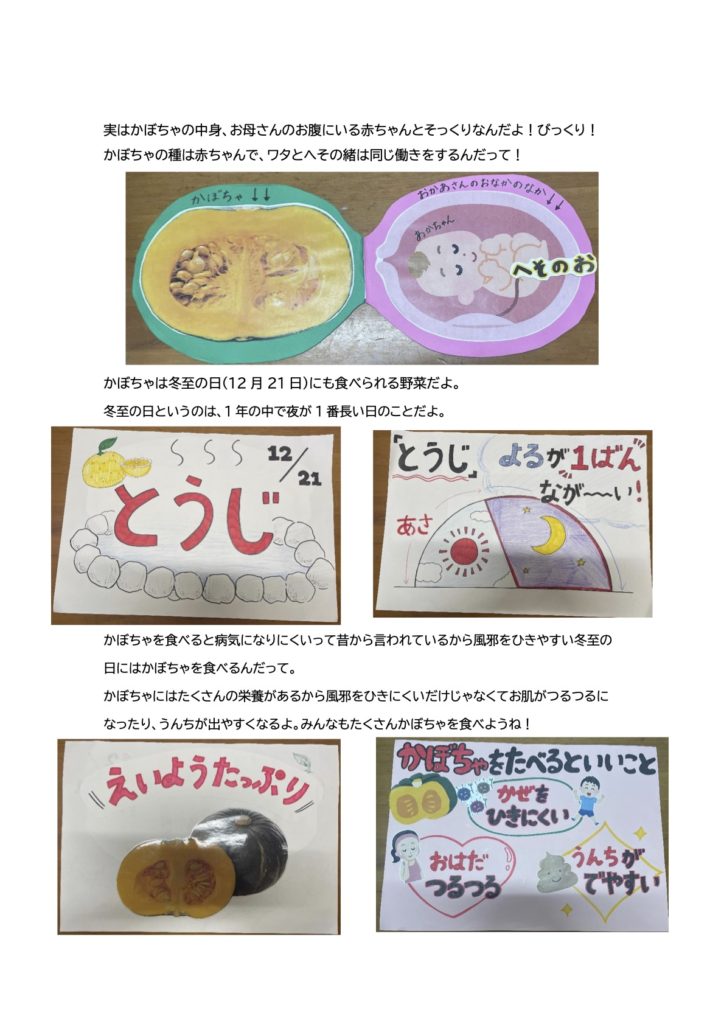 実はかぼちゃの中身、お母さんのお腹にいる赤ちゃんとそっくりなんだよ！びっくり！
かぼちゃの種は赤ちゃんで、ワタとへその緒は同じ働きをするんだって！
かぼちゃ↓↓
おかあさんのおなかのなか↓↓
あかちゃん
へそのお
かぼちゃは冬至の日(12月21日)にも食べられる野菜だよ。
冬至の日というのは、1年の中で夜が1番長い日のことだよ。
12/21
とうじ
「とうじ」
よるが1ばん
なが～～い!
あさ
かぼちゃを食べると病気になりにくいって昔から言われているから風邪をひきやすい冬至の
日にはかぼちゃを食べるんだって。
かぼちゃにはたくさんの栄養があるから風邪をひきにくいだけじゃなくてお肌がつるつるに
なったり、うんちが出やすくなるよ。みんなもたくさんかぼちゃを食べようね！
えいようたっぷり
かぼちゃをたべるといいこと
かぜを
ひきにくい
おはだ
つるつる
うんちが
でやすい